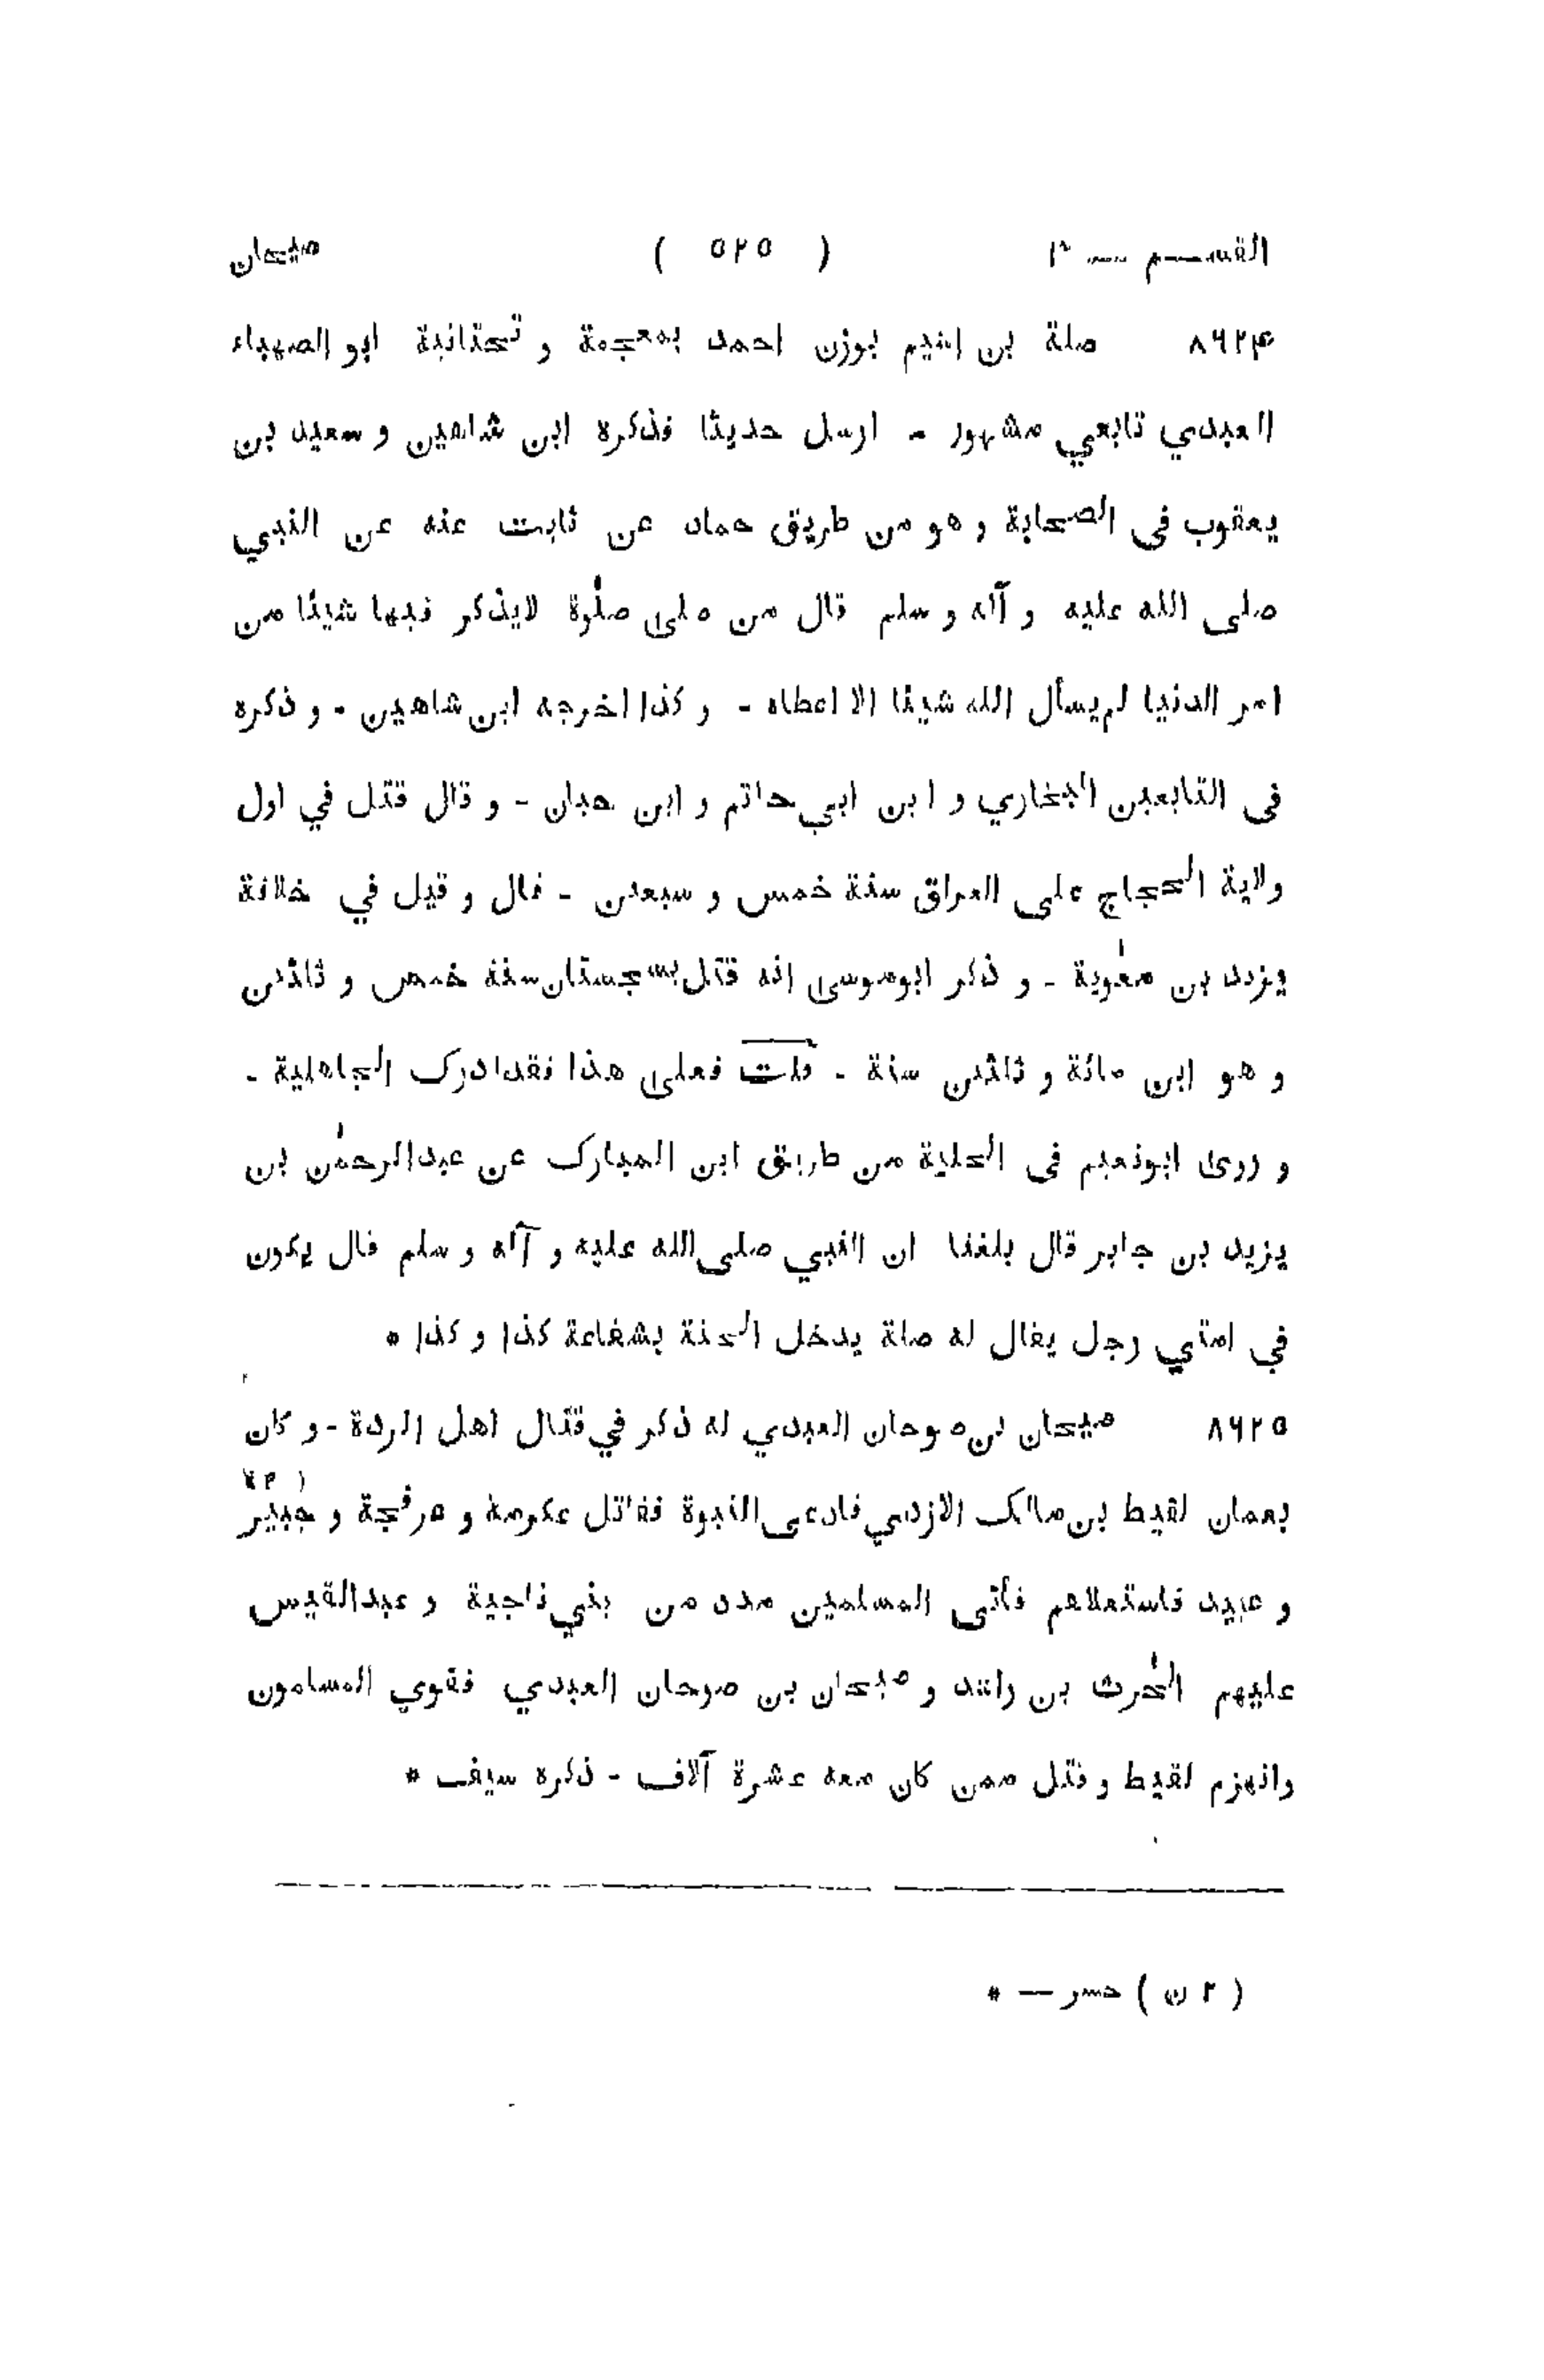 القســم — ٣ ( ٥٢٥ ) صيحان
٨٦٢۴ صلة بن اشيم بوزن احمد بمعجمة و تحتانية ابو الصهباء
العبدي تابعي مشهور - ارسل حديثا فذكره ابن شاهين و سعيد بن
يعقوب فى الصحابة و هو من طريق حماد عن ثابت عنه عن النبي
صلى الله عليه و آله و سلم قال من صلى صلٰوة لايذكر فيها شيئا من
امر الدنيا لم يسأل الله شيئا الا اعطاه - و كذا اخرجه ابن شاهين - و ذكره
فى التابعين البخاري و ابن ابي حاتم و ابن حبان - و قال قتل في اول
ولاية الحجاج على العراق سنة خمس و سبعين - قال و قيل في خلافة
يزيد بن معٰوية - و ذكر ابوموسى انه قتل بسجستان سنة خمس و ثلثين
و هو ابن مائة و ثلثين سنة - قلت فعلى هذا فقد ادرك الجاهلية -
و روى ابونعيم فى الحلية من طريق ابن المبارك عن عبدالرحمٰن بن
يزيد بن جابر قال بلغنا ان النبي صلى الله عليه و آله و سلم قال يكون
في امتي رجل يقال له صلة يدخل الجنة بشفاعة كذا و كذا *
٨٦٢٥ صيحان بن صوحان العبدي له ذكر في قتال اهل الردة - و كان
بعمان لقيط بن مالك الازدي فادعى النبوة فقاتل عكرمة و عرفجة و جبير
و عبيد فاستعلاهم فأتى المسلمين مدد من بني ناجية و عبدالقيس
عليهم الخرٰث بن راشد و صيحان بن صوحان العبدي فقوي المسلمون
وانهزم لقيط و قتل ممن كان معه عشرة آلاف - ذكره سيف *
( ٢ ن ) حسر — *